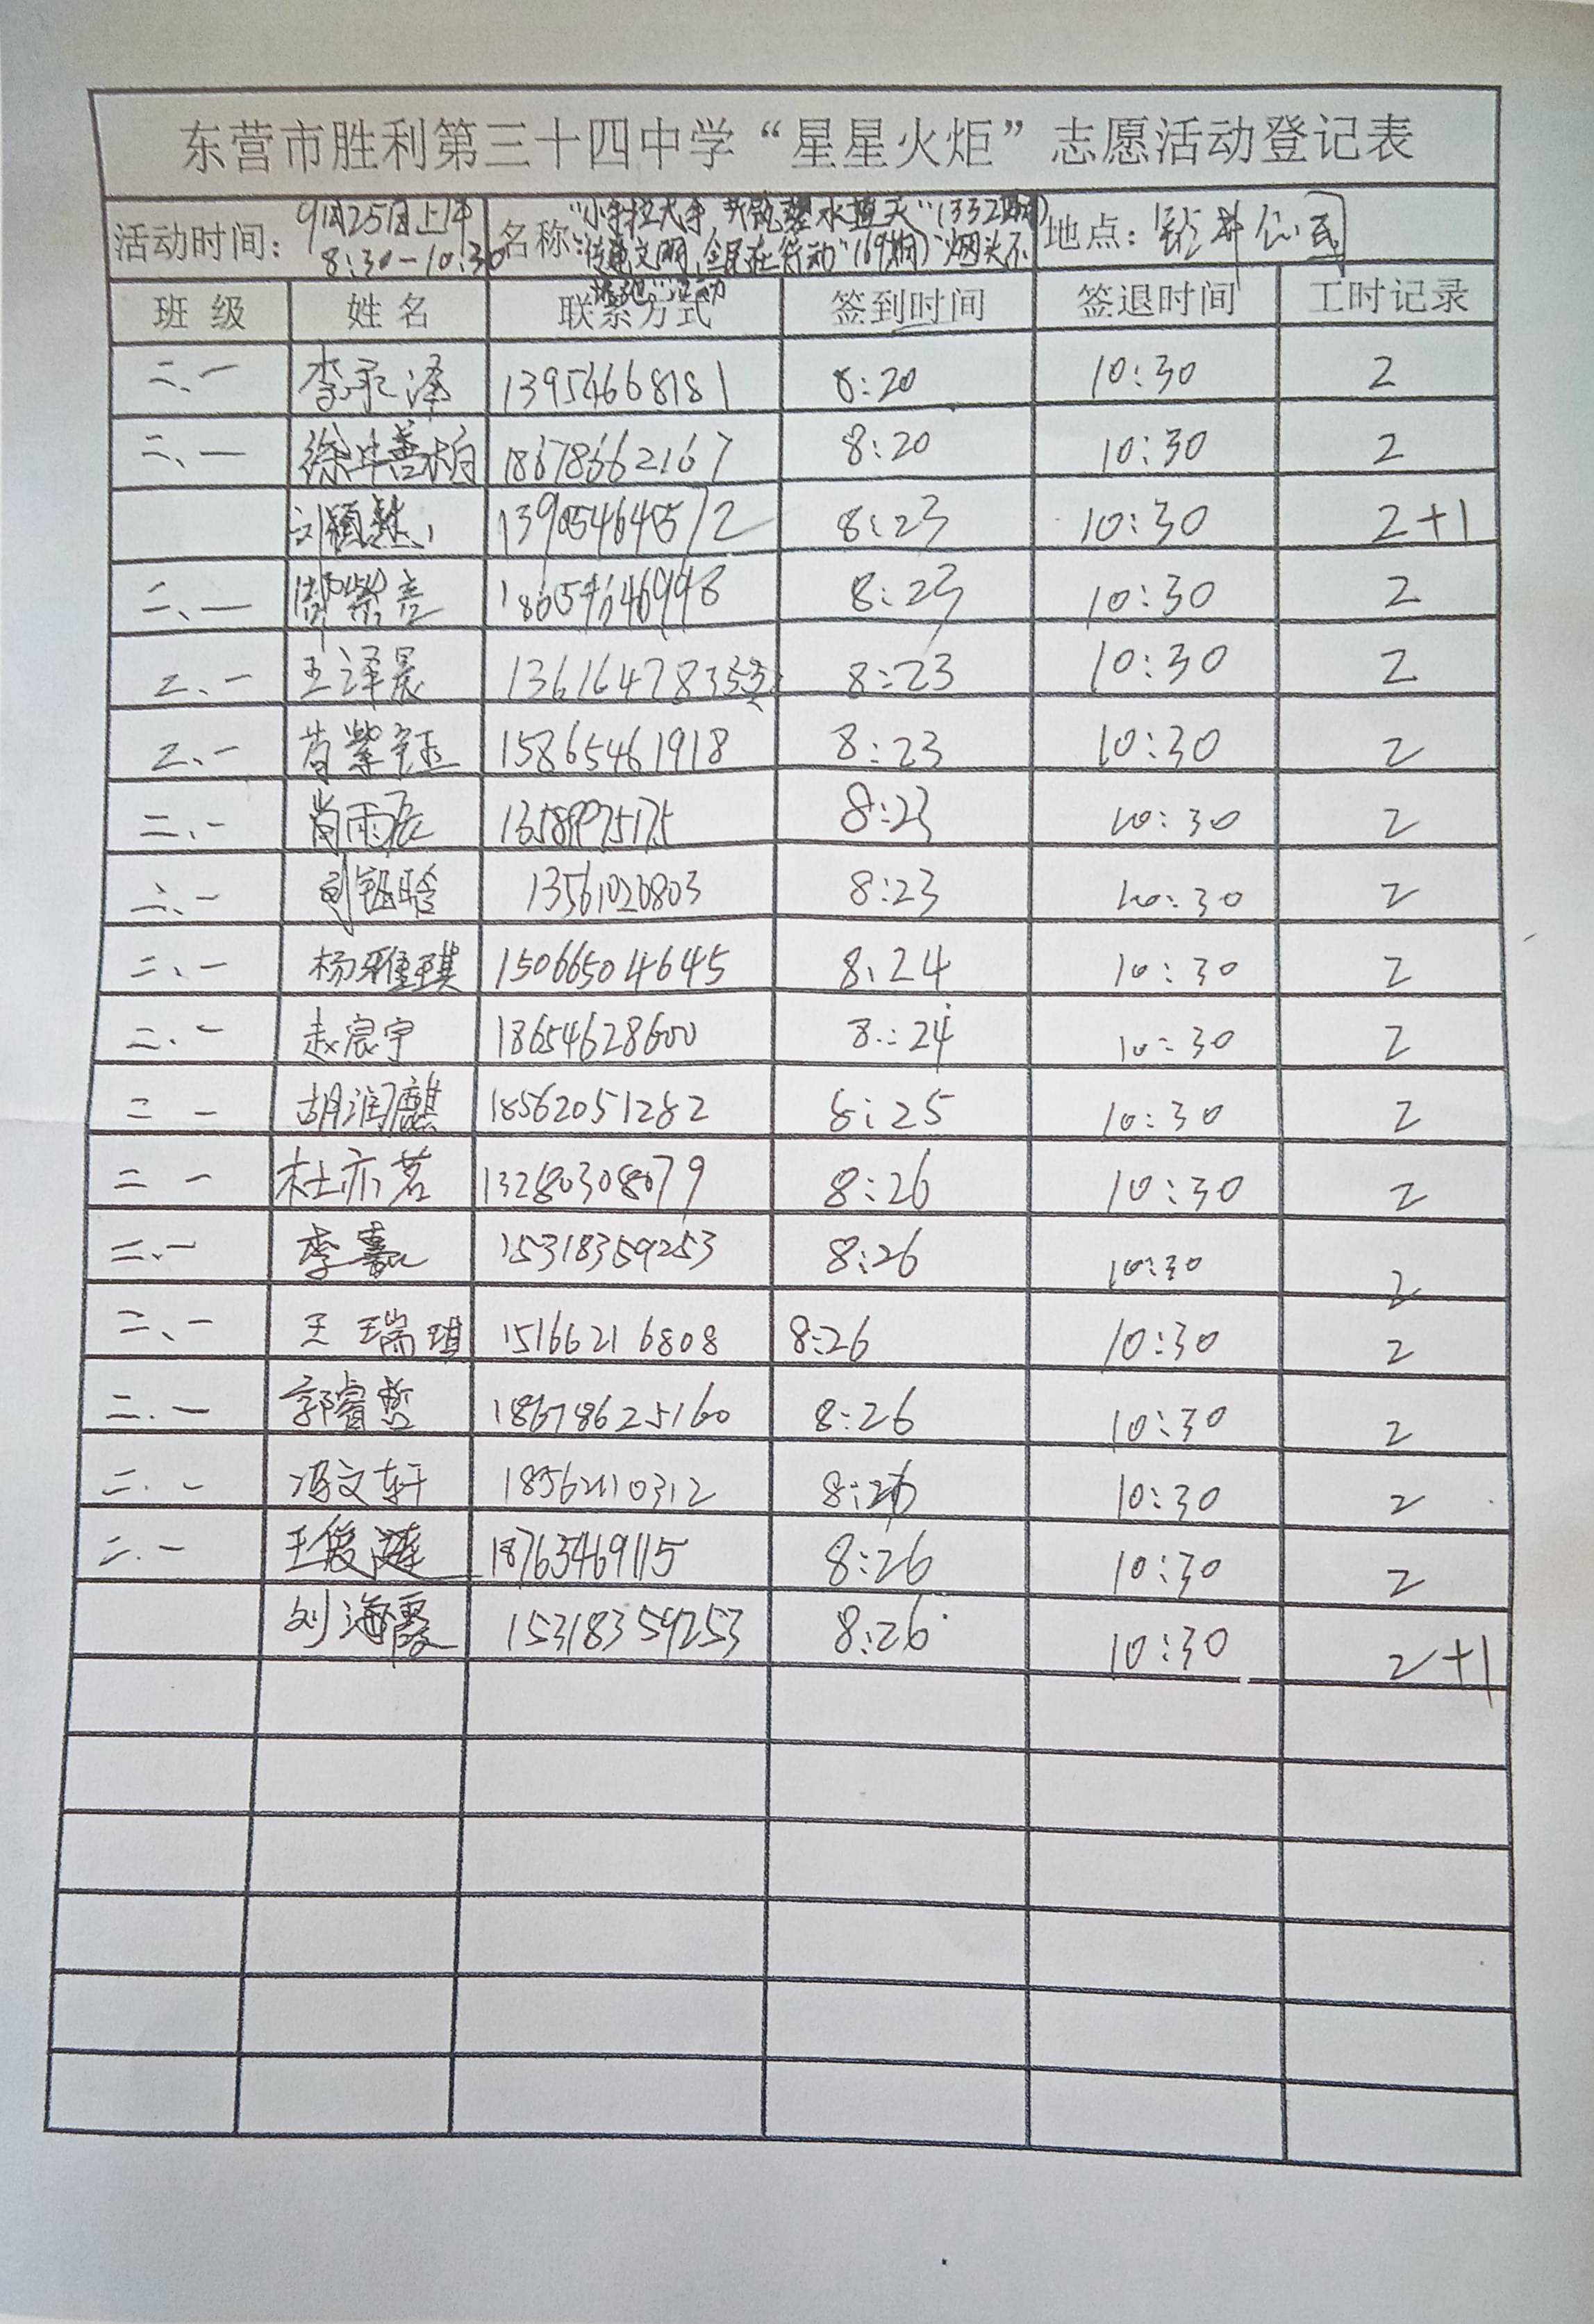 东营市胜利第三十四中学“星星火炬”志愿活动登记表
活动时间：9月25日上午 8:30-10:30 名称：“小手拉大手，共筑碧水蓝天”(332期) “传递文明，全民在行动”(169期)“烟头不落地”活动 地点：钻井公司
班 级 姓 名 联系方式 签到时间 签退时间 工时记录
二、一 李承泽 13954668181 8:20 10:30 2
二、一 徐 善柏 18678662167 8:20 10:30 2
刘颖 8:23 10:30 2+1
二、一 紫 18 8:23 10:30 2
二、一 王泽晨 8:23 10:30 2
二、一 肖紫钰 15865461918 8:23 10:30 2
二、一 肖雨辰 8:23 10:30 2
二、一 刘钰晗 8:23 10:30 2
二、一 杨雅琪 15066504645 8:24 10:30 2
二、一 赵宸宇 18654628600 8:24 10:30 2
二 一 胡润麒 18562051282 8:25 10:30 2
二 一 杜亦茗 13280308079 8:26 10:30 2
二、一 李 15318359253 8:26 10:30 2
二、一 王瑞琪 15166216808 8:26 10:30 2
二、一 郭睿哲 18678625160 8:26 10:30 2
二、一 冯文轩 18562110312 8:26 10:30 2
二、一 王俊 18763469115 8:26 10:30 2
刘海霞 15318359253 8:26 10:30 2+1